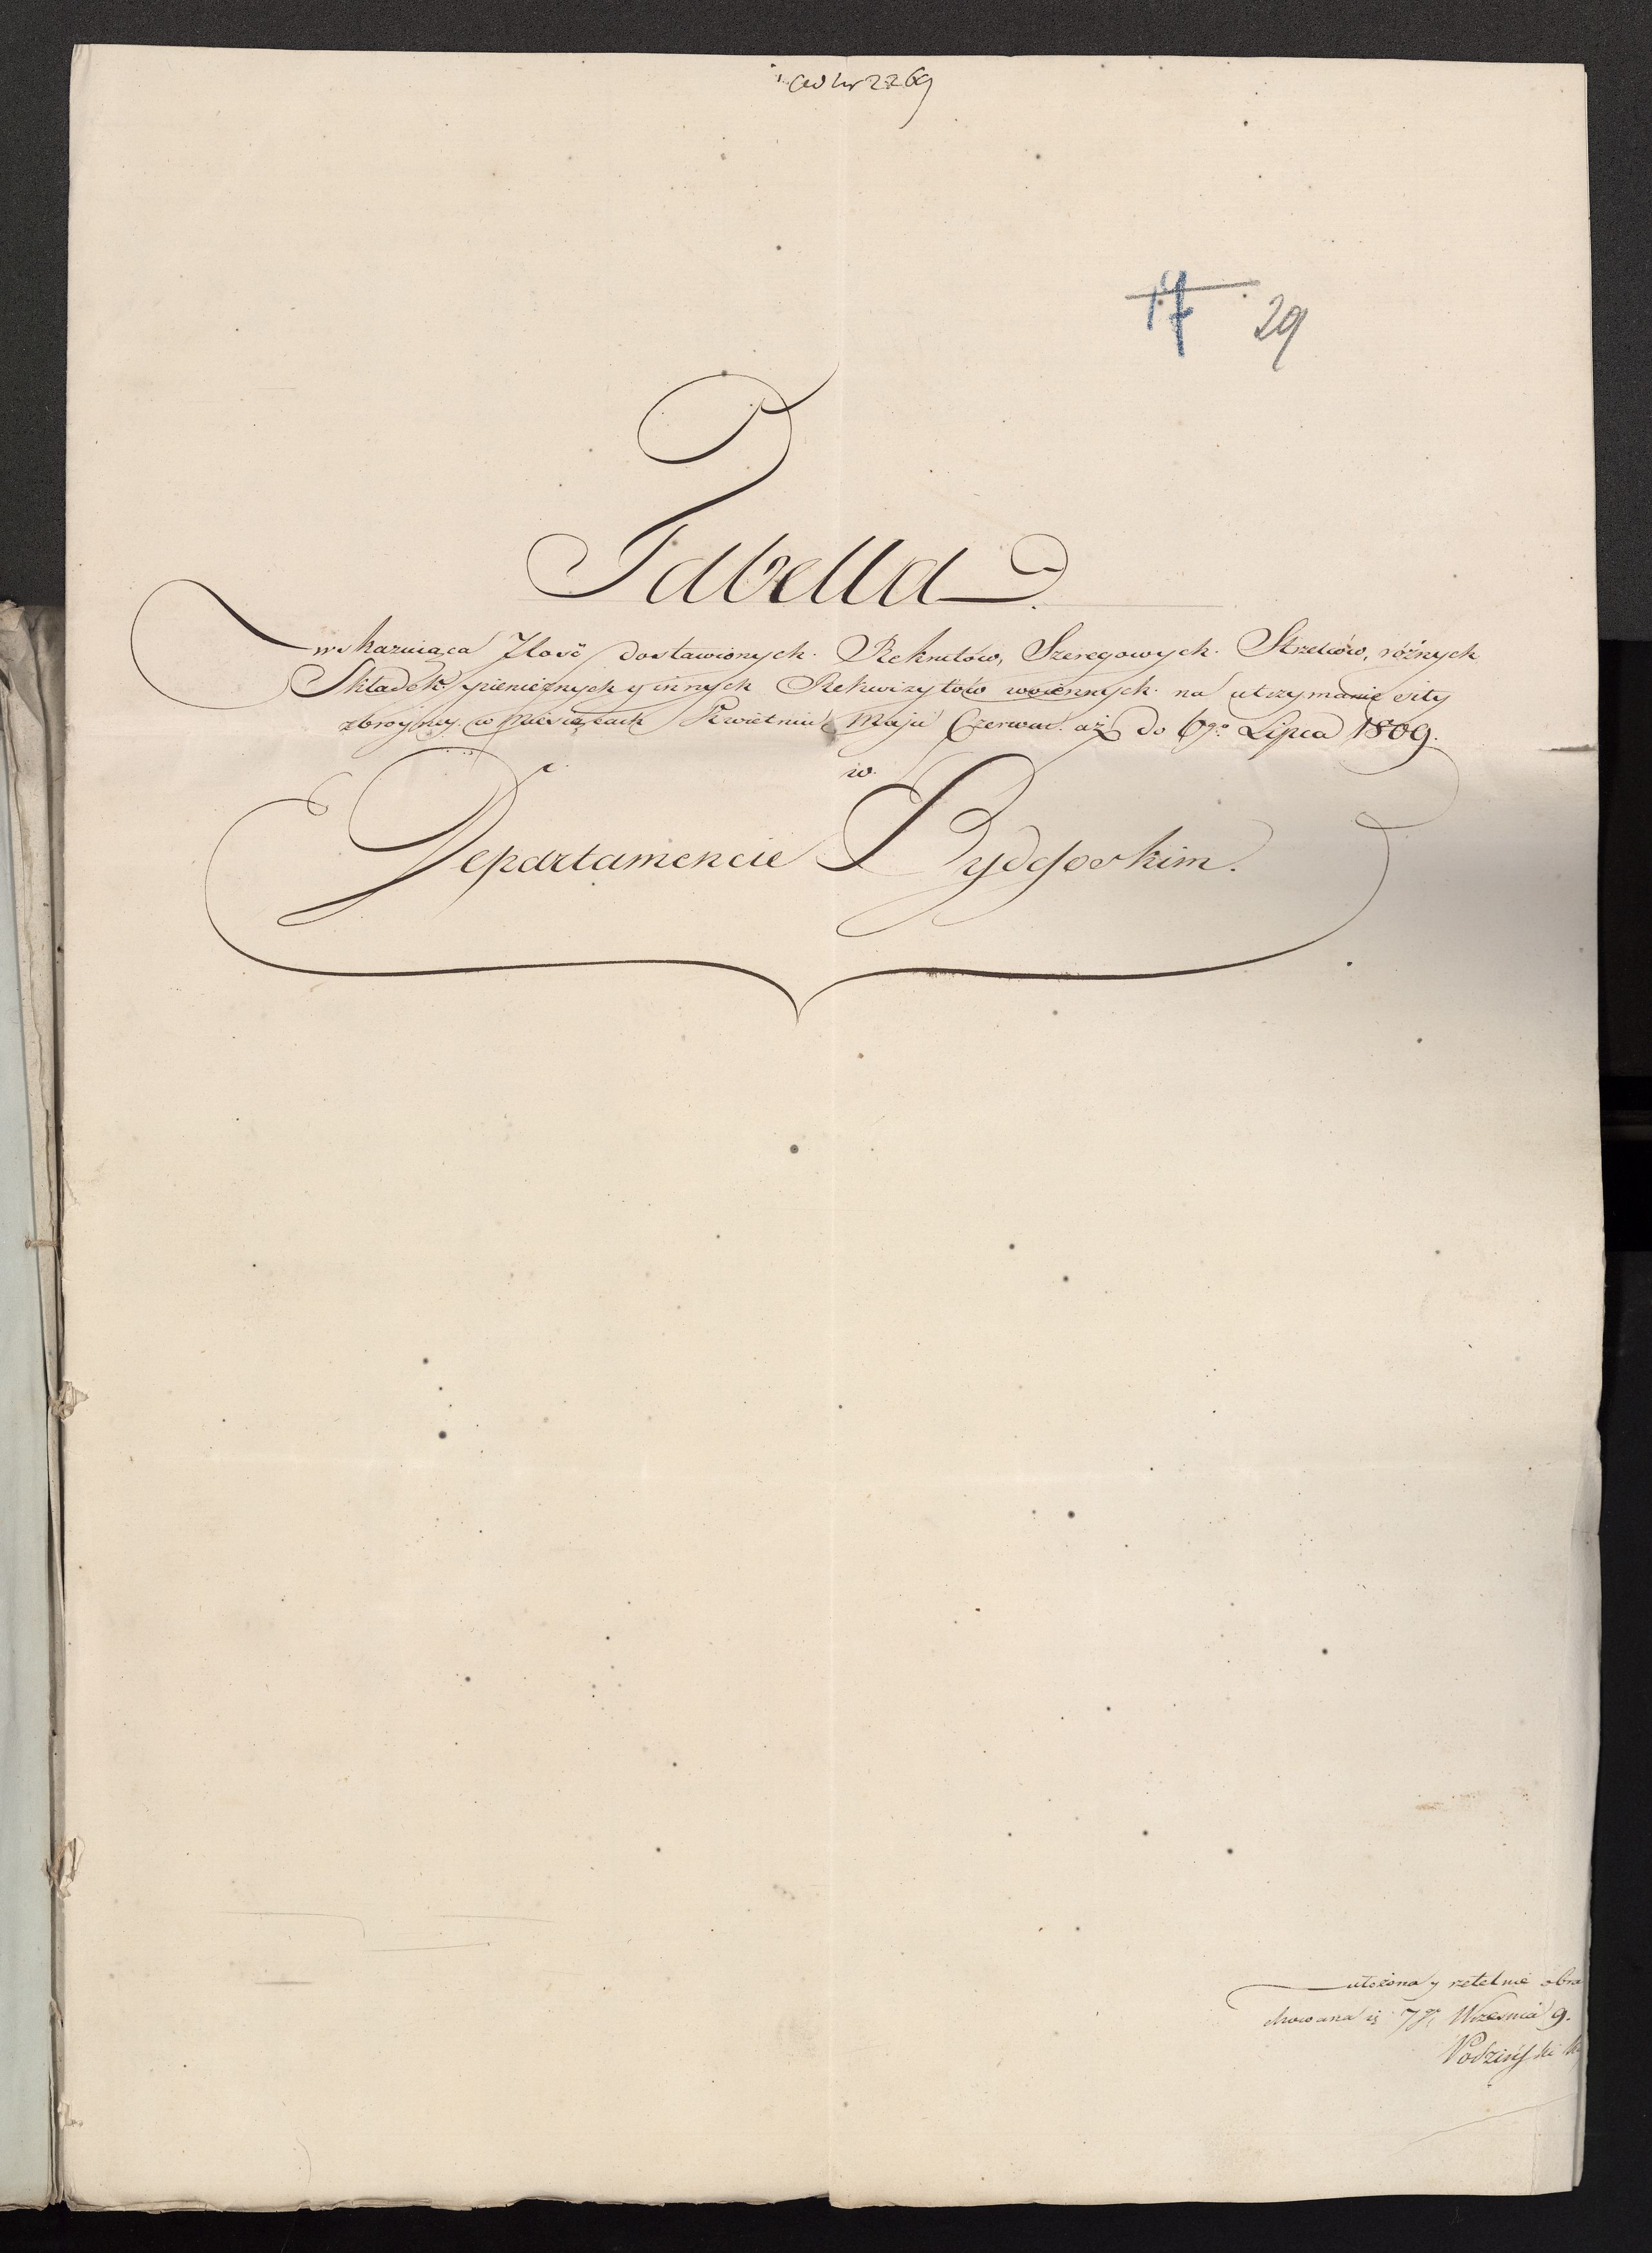 ad Nr 2269
17 29
Tabella
wskazuiąca Jlość dostawionych Rekrutów, Szeregowych Strzelców, różnych
Składek pienieżnych y innych Rekwizytów woiennych na utrzymanie siły
zbroyney w Miesiącach Kwietniu Maju Czerwcu aż do 6go Lipca 1809.
w
Departamencie Bydgoskim.
ułożona y rzetelnie obra
chowana is 7go Września 9.